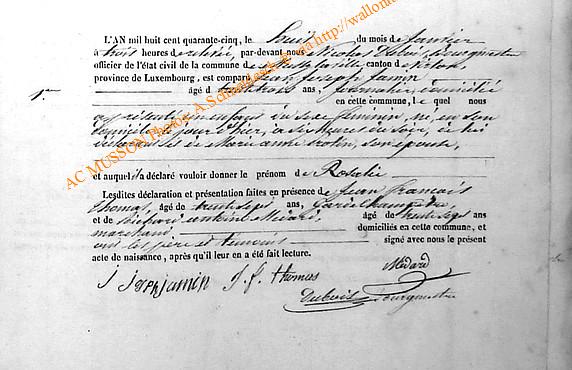 L'AN mil huit cent quarante-cinq, le huit du mois de Janvier
à trois heures de relevée, par-devant nous Nicolas Dubois, Bourgmestre
officier de l'état civil de la commune de canton de
province de Luxembourg, est comparu Jean Joseph Jamin
1er.
âgé de trente trois ans, journalier, domicilié
en cette commune, lequel nous
a présenté un enfant du sexe féminin, né, en son
domicile, le jour d'hier, à six heures du soir, de lui
déclarant et de Marie anne son épouse,
et auquel il a déclaré vouloir donner le prénom de Rosalie
Lesdites déclaration et présentation faites en présence de Jean francois
thomas, âgé de trente sept ans, Garde Champêtre
et de Richard antoine Médard, âgé de trente sept ans
marchand domiciliés en cette commune, et
ont les père et témoins signé avec nous le présent
acte de naissance, après qu'il leur en a été fait lecture.
J Josephjamin J. f. thomas Médard
Dubois Bourgmestre
AC MUSSON Photos A.Schmitz http://wallonia